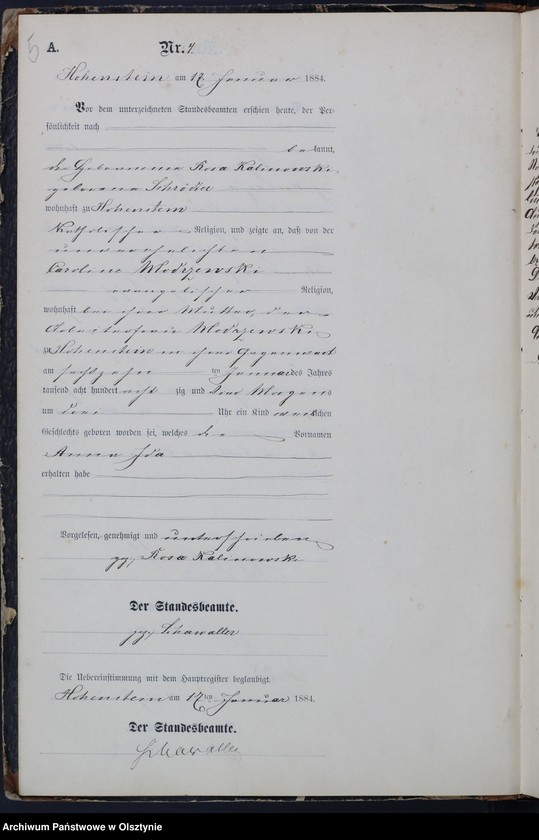 5
A. Nr. 7.
Hohenstein am 17. Januar 1884.
Vor dem unterzeichneten Standesbeamten erschien heute, der Per-
sönlichkeit nach
bekannt,
die Hebeamme Rosa Kalinowski
geborene
wohnhaft zu Hohenstein
Katholischer Religion, und zeigte an, daß von der
unverehelichten
Caroline Wlodzewski
evangelischer Religion,
wohnhaft bei ihrer Mutter, der
Arbeiterfrau Wlodzewski
zu Hohenstein in ihrer Gegenwart
am sechzehn ten Januar des Jahres
tausend acht hundert acht zig und vier Morgens
um drei Uhr ein Kind weiblichen
Geschlechts geboren worden sei, welches die Vornamen
Anna Ida
erhalten habe
Vorgelesen, genehmigt und unterschrieben
gz. Rosa Kalinowski
Der Standesbeamte.
gz. Schawaller
Die Uebereinstimmung mit dem Hauptregister beglaubigt.
Hohenstein am 17ten Januar 1884.
Der Standesbeamte.
Schawaller
Archiwum Państwowe w Olsztynie